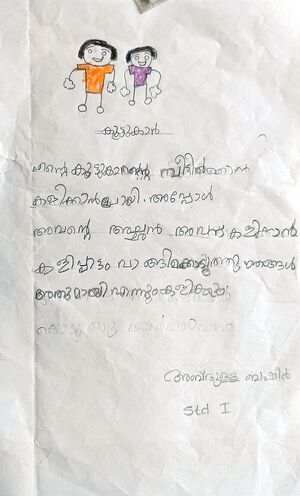 കൂട്ടുകാർ
എന്റെ കൂട്ടുകാരന്റെ വീട്ടിൽ
കളിക്കാൻ പോയി. അപ്പോൾ
അവന്റെ അച്ഛൻ അവന് കളിക്കാൻ
കളിപ്പാട്ടം വാങ്ങി കൊടുത്തു ഞങ്ങൾ
അതുമായി എന്നും കളിക്കും
അബ്ദുള്ള ബഷീർ
Std I